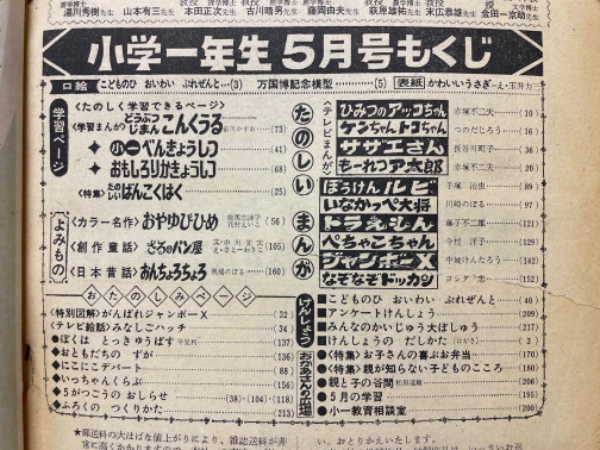 湯川秀樹先生 山本有三先生 本田正次先生 古川晴男先生 藤岡由夫先生 萩原雄祐先生 末広恭雄先生 金田一京助先生
小学一年生5月号もくじ
口絵 こどものひ おいわい ぷれぜんと…(3) 万国博記念模型…(5) 表紙 かわいいうさぎ
学習ページ
<たのしく学習できるページ>
<学習まんが>どうぶつじまんこんくうる (73)
小一べんきょうしつ (41)
おもしろりかきょうしつ (68)
<特集>たのしいばんこくはく (25)
よみもの
<カラー名作>おやゆびひめ (56)
<創作童話>ざるのパン屋 (105)
<日本昔話>おんちょろちょろ 馬場のぼる (160)
たのしいまんが
<テレビまんが>
ひみつのアッコちゃん 赤塚不二夫 (10)
ケンちゃんトコちゃん つのだじろう (16)
サザエさん 長谷川町子 (36)
もーれつア太郎 赤塚不二夫 (26)
ぼうけんルビ 手塚治虫 (89)
いなかっぺ大将 川崎のぼる (97)
ドラえもん 藤子不二雄 (121)
ぺちゃこちゃん 今村洋子 (129)
ジャンボーX 中城けんたろう (142)
なぞなぞドッカン (152)
おたのしみページ
<特別図解>がんばれジャンボーX (32)
<テレビ絵話>みなしごハッチ (34)
●ぼくは とっきゅうばす 早見利 (137)
◆おともだちの ずが (136)
◆にこにこデパート (88)
◆いっちゃんくらぶ (156)
◆5がつごうの おしらせ (38)・(104)・(118)
◆ふろくの つくりかた (213)
けんしょう
■こどものひ おいわい ぷれぜんと (40)
■アンケートけんしょう (209)
■みんなのかいじゅう大ぼしゅう (217)
■けんしょうの だしかた (はがき) (3)
おかあさんの広場
●<特集>お子さんの喜ぶお弁当 (170)
●<特集>親が知らない子どものこころ (180)
●親と子の谷間 松田道雄 (206)
●5月の学習 (195)
●小一教育相談室 (200)
★郵送料の大はばな値上がりにより、雑誌送料が非
常に高くかかりますので
い。おとりかえいたします。